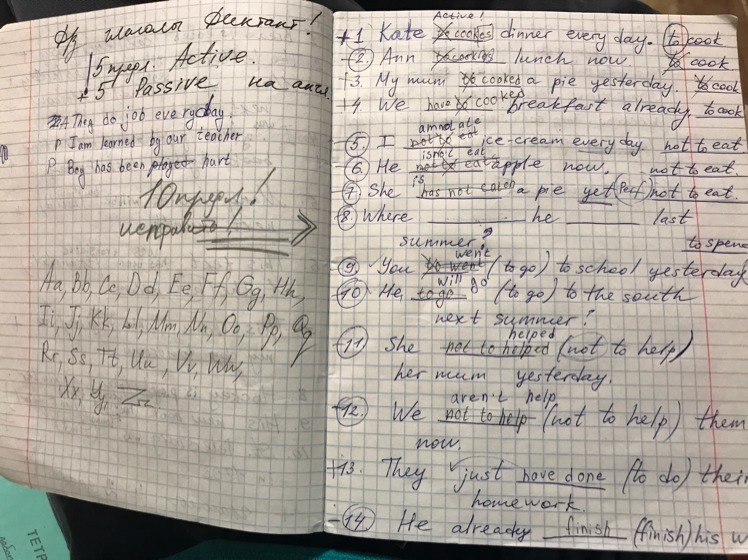 глаголы диктант!
5 предл. Active.
+ 5 Passive на англ.
They do job everyday.
P I am learned by our teacher
P Boy has been played hurt
10 предл!
исправить!
Aa, Bb, Cc, Dd, Ee, Ff, Gg, Hh,
Ii, Jj, Kk, Ll, Mm, Nn, Oo, Pp, Qq
Rr, Ss, Tt, Uu, Vv, Ww,
Xx, Yy, Zz
Active!
+1 Kate to cookes dinner every day. to cook
2. Ann lunch now. to cook
+3. My mum to cooked a pie yesterday. to cook
+4. We have to cooked breakfast already. to cook
5. I not to eat ice-cream everyday. not to eat
isn't eat
6. He not to eat apple now. not to eat.
is
7. She has not eaten a pie yet (Perf) not to eat.
8. Where he last
summer? to spend
went
9. You to went (to go) to school yesterday
will go
10. He to go (to go) to the south
next summer!
helped
11. She not to helped (not to help)
her mum yesterday.
aren't help
12. We not to help (not to help) them
now.
+13. They just have done (to do) their
homework.
14. He already finish (finish) his w
ТЕТР